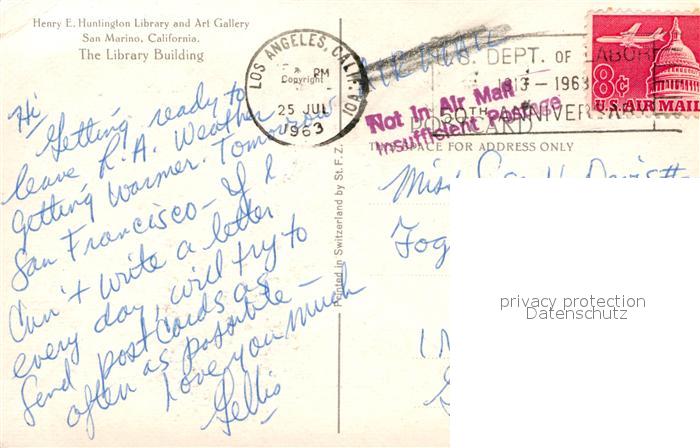 Henry E. Huntington Library and Art Gallery
San Marino, California.
The Library Building
Hi
Getting ready to
leave L.A. Weather
getting warmer. Tomorrow
San Francisco - If I
Can't write a letter
every day, will try to
Send postcards as
often as possible -
love you much
LOS ANGELES, CALIF.
Copyright
PM
25 JUL
1963
AIR MAIL
U.S. DEPT. OF LABOR
1913 - 1963
50TH ANNIVERSA
POST CARD
Not In Air Mail
Insufficient Postage
8¢
U.S. AIR MAIL
THIS SPACE FOR ADDRESS ONLY
Printed in Switzerland by St. F. Z.
Miss
privacy protection
Datenschutz